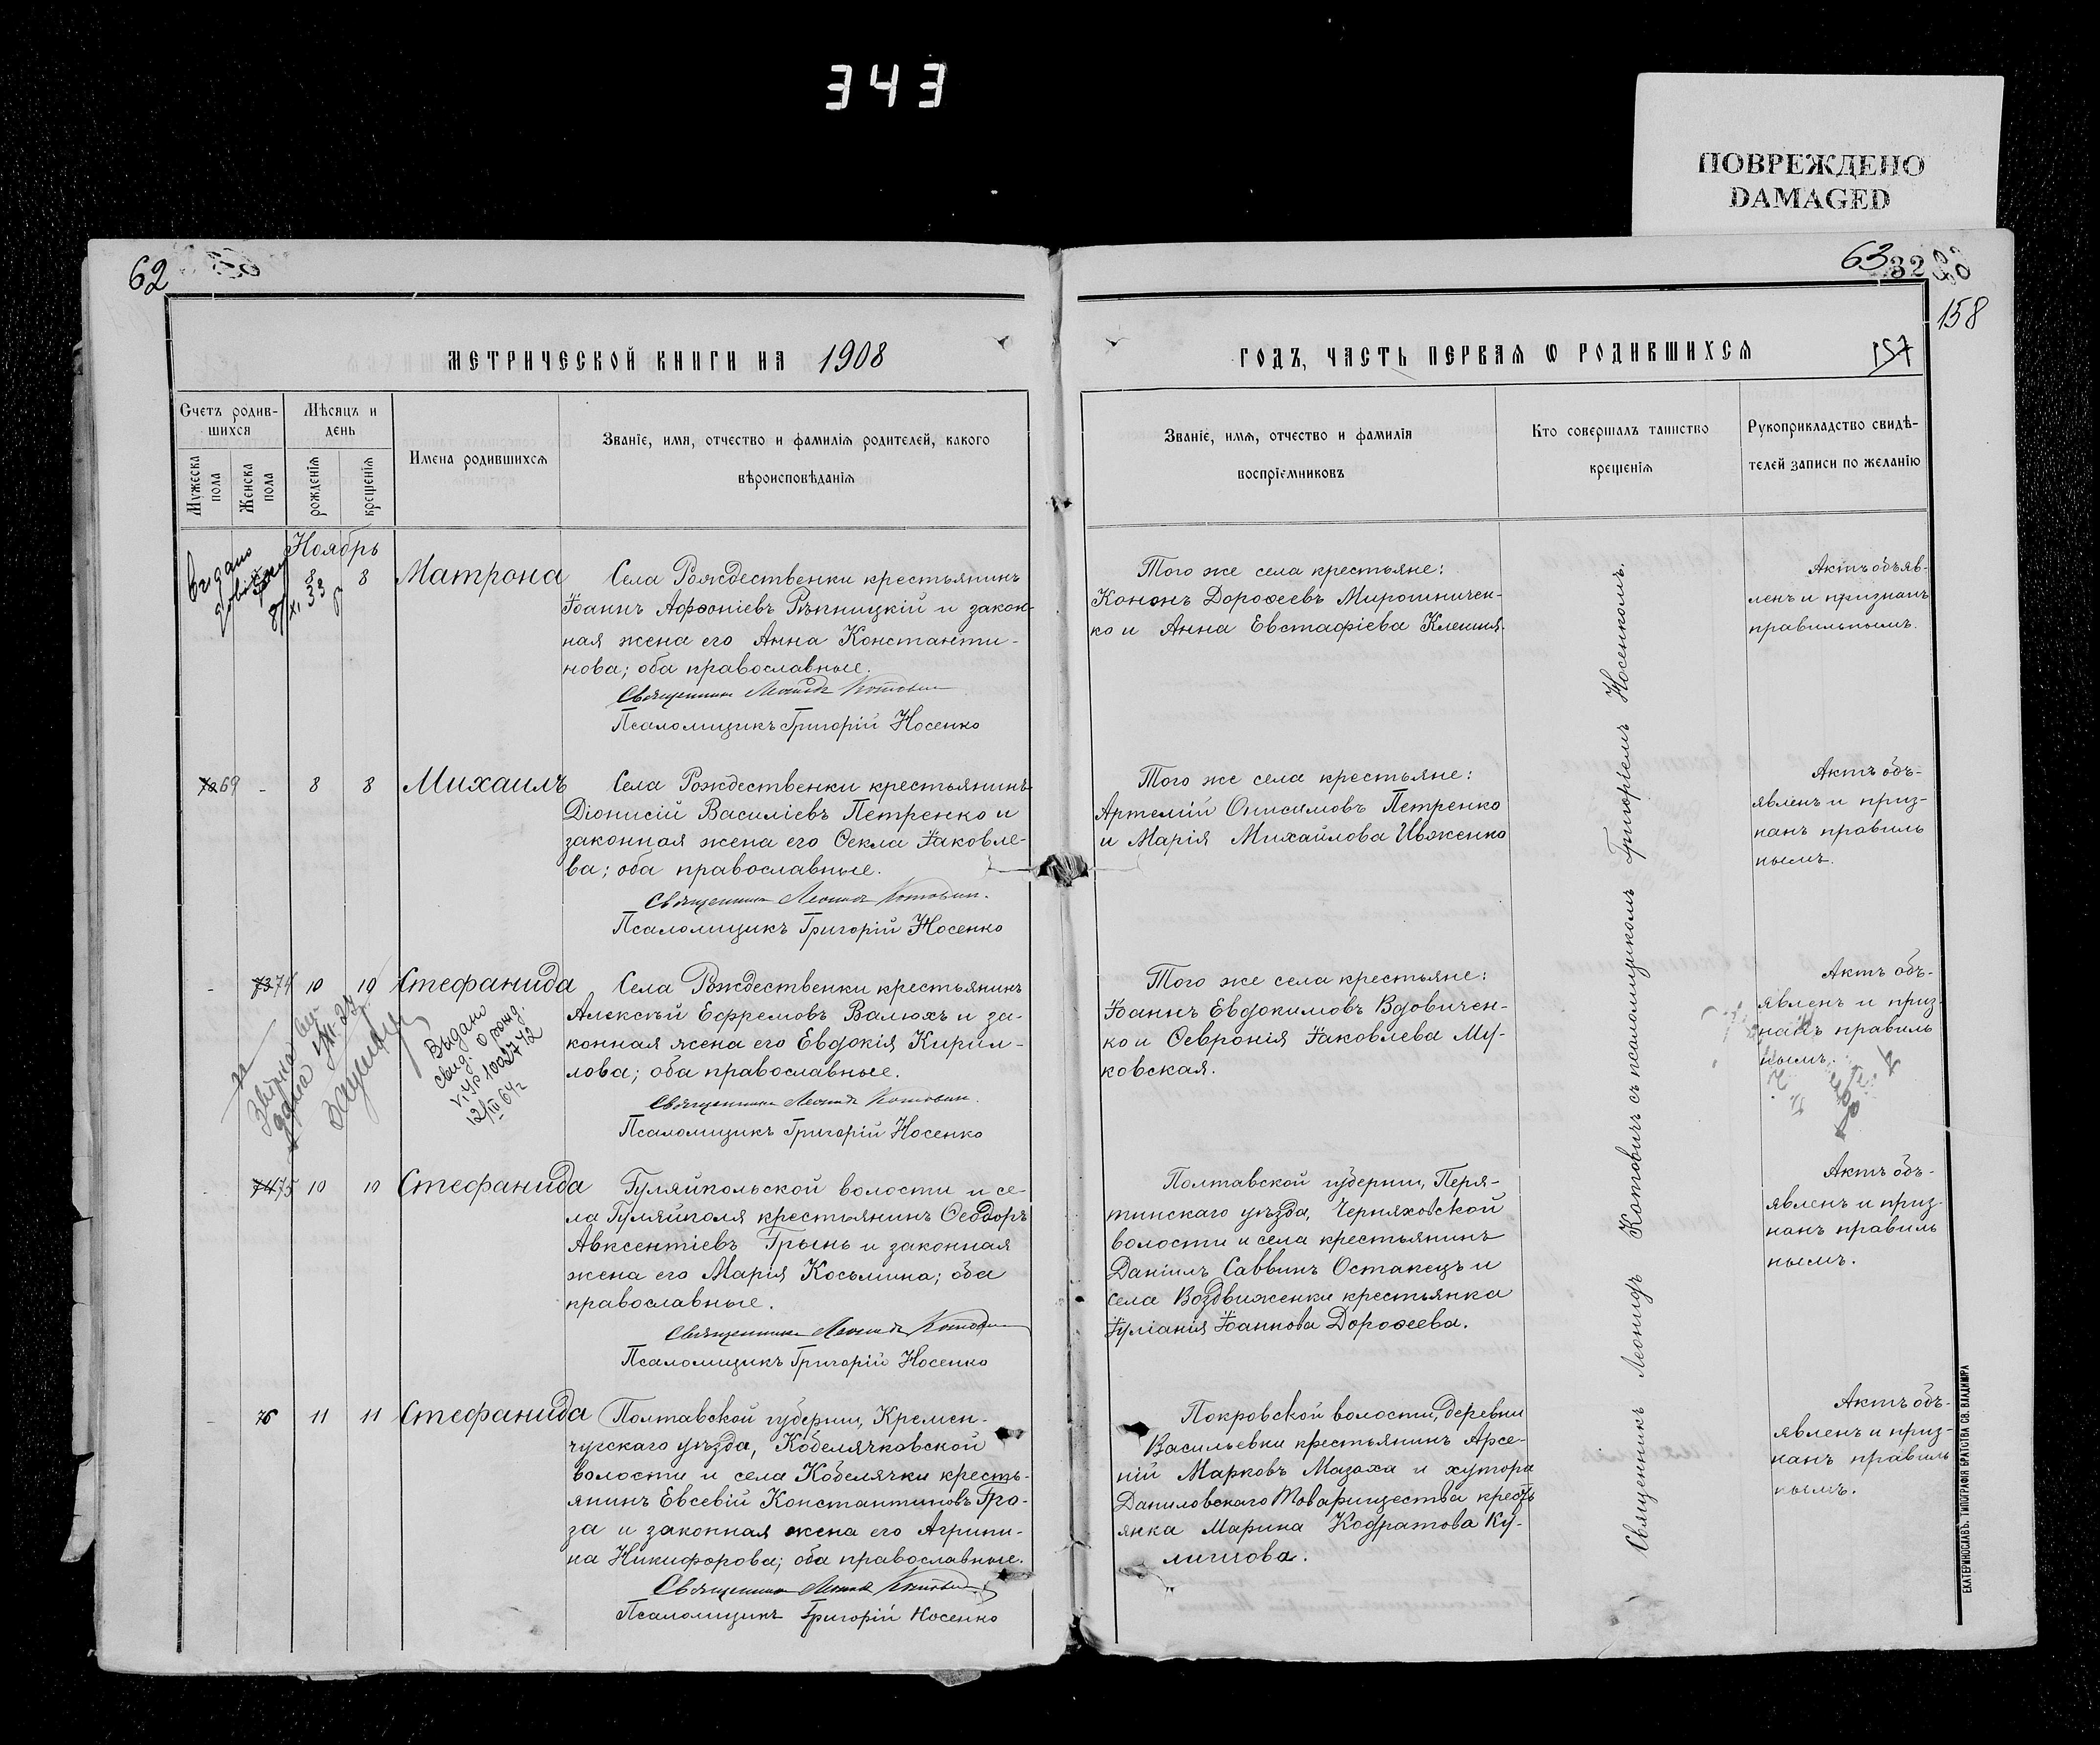 343
ПОВРЕЖДЕНО
DAMAGED
62
63
32
158
МЕТРИЧЕСКОЙ КНИГИ НА 1908
ГОДЪ, ЧАСТЬ ПЕРВАЯ Ѡ РОДИВШИХСЯ
157
Счетъ родив-
шихся
Мужеска пола
Женска пола
Мѣсяцъ и
день
рожденія
крещенія
Имена родившихся
Званіе, имя, отчество и фамилія родителей, какого
вѣроисповѣданія
Званіе, имя, отчество и фамилія
воспріемниковъ
Кто совершалъ таинство
крещенія
Рукоприкладство свидѣ-
телей записи по желанію
Ноябрь
8
Матрона
Села Рождественки крестьянинъ
Іоаннъ Афѳоніевъ Рѣпницкій и закон-
ная жена его Анна Константи-
нова; оба православные.
Священникъ Леонидъ Котовичъ
Псаломщикъ Григорій Носенко
Того же села крестьяне:
Кононъ Дороѳеевъ Мирошничен-
ко и Анна Евстафіева
Актъ объяв-
ленъ и признанъ
правильнымъ.
69
-
8
8
Михаилъ
Села Рождественки крестьянинъ
Діонисій Василіевъ Петренко и
законная жена его Ѳекла Іаковле-
ва; оба православные.
Священникъ Леонидъ Котовичъ.
Псаломщикъ Григорій Носенко
Того же села крестьяне:
Артемій Онисимовъ Петренко
и Марія Михайлова Ивженко
Актъ объ-
явленъ и приз-
нанъ правиль
нымъ.
-
73 74
10
10
Стефанида
Выдано
свид. о рожд.
Села Рождественки крестьянинъ
Алексѣй Ефремовъ Валюхъ и за-
конная жена его Евдокія Кирил-
лова; оба православные.
Священникъ Леонидъ Котовичъ.
Псаломщикъ Григорій Носенко
Того же села крестьяне:
Іоаннъ Евдокимовъ Вдовичен-
ко и Ѳевронія Іаковлева Му-
ковская.
Актъ объ-
явленъ и приз-
нанъ правиль
нымъ.
74 75
10
10
Стефанида
Гуляйпольской волости и се-
ла Гуляйполя крестьянинъ Ѳеодоръ
Авксентіевъ Грынь и законная
жена его Марія Косьмина; оба
православные.
Священникъ Леонидъ Котовичъ
Псаломщикъ Григорій Носенко
Полтавской губерніи, Перя-
тинскаго уѣзда, Черняховской
волости и села крестьянинъ
Даніилъ Саввинъ Остапецъ и
села Воздвиженки крестьянка
Іуліанія Іоаннова Дороѳеева.
Актъ объ-
явленъ и приз-
нанъ правиль
нымъ.
-
76
11
11
Стефанида
Полтавской губерніи, Кремен-
чугскаго уѣзда, Кобелячковской
волости и села Кобелячки кресть-
янинъ Евсевій Константиновъ Гро-
за и законная жена его Агрипи-
на Никифорова; оба православные.
Священникъ Леонидъ Котовичъ
Псаломщикъ Григорій Носенко
Покровской волости, деревни
Васильевки крестьянинъ Арсе-
ній Марковъ Мазоха и хутора
Даниловскаго Товарищества крест
янка Марина Кодратова Ку-
лишова.
Актъ объ-
явленъ и приз-
нанъ правиль
нымъ.
Священникъ Леонидъ Котовичъ съ псаломщикомъ Григоріемъ Носенкомъ.
ЕКАТЕРИНОСЛАВЪ. ТИПОГРАФІЯ БРАТСТВА СВ. ВЛАДИМІРА